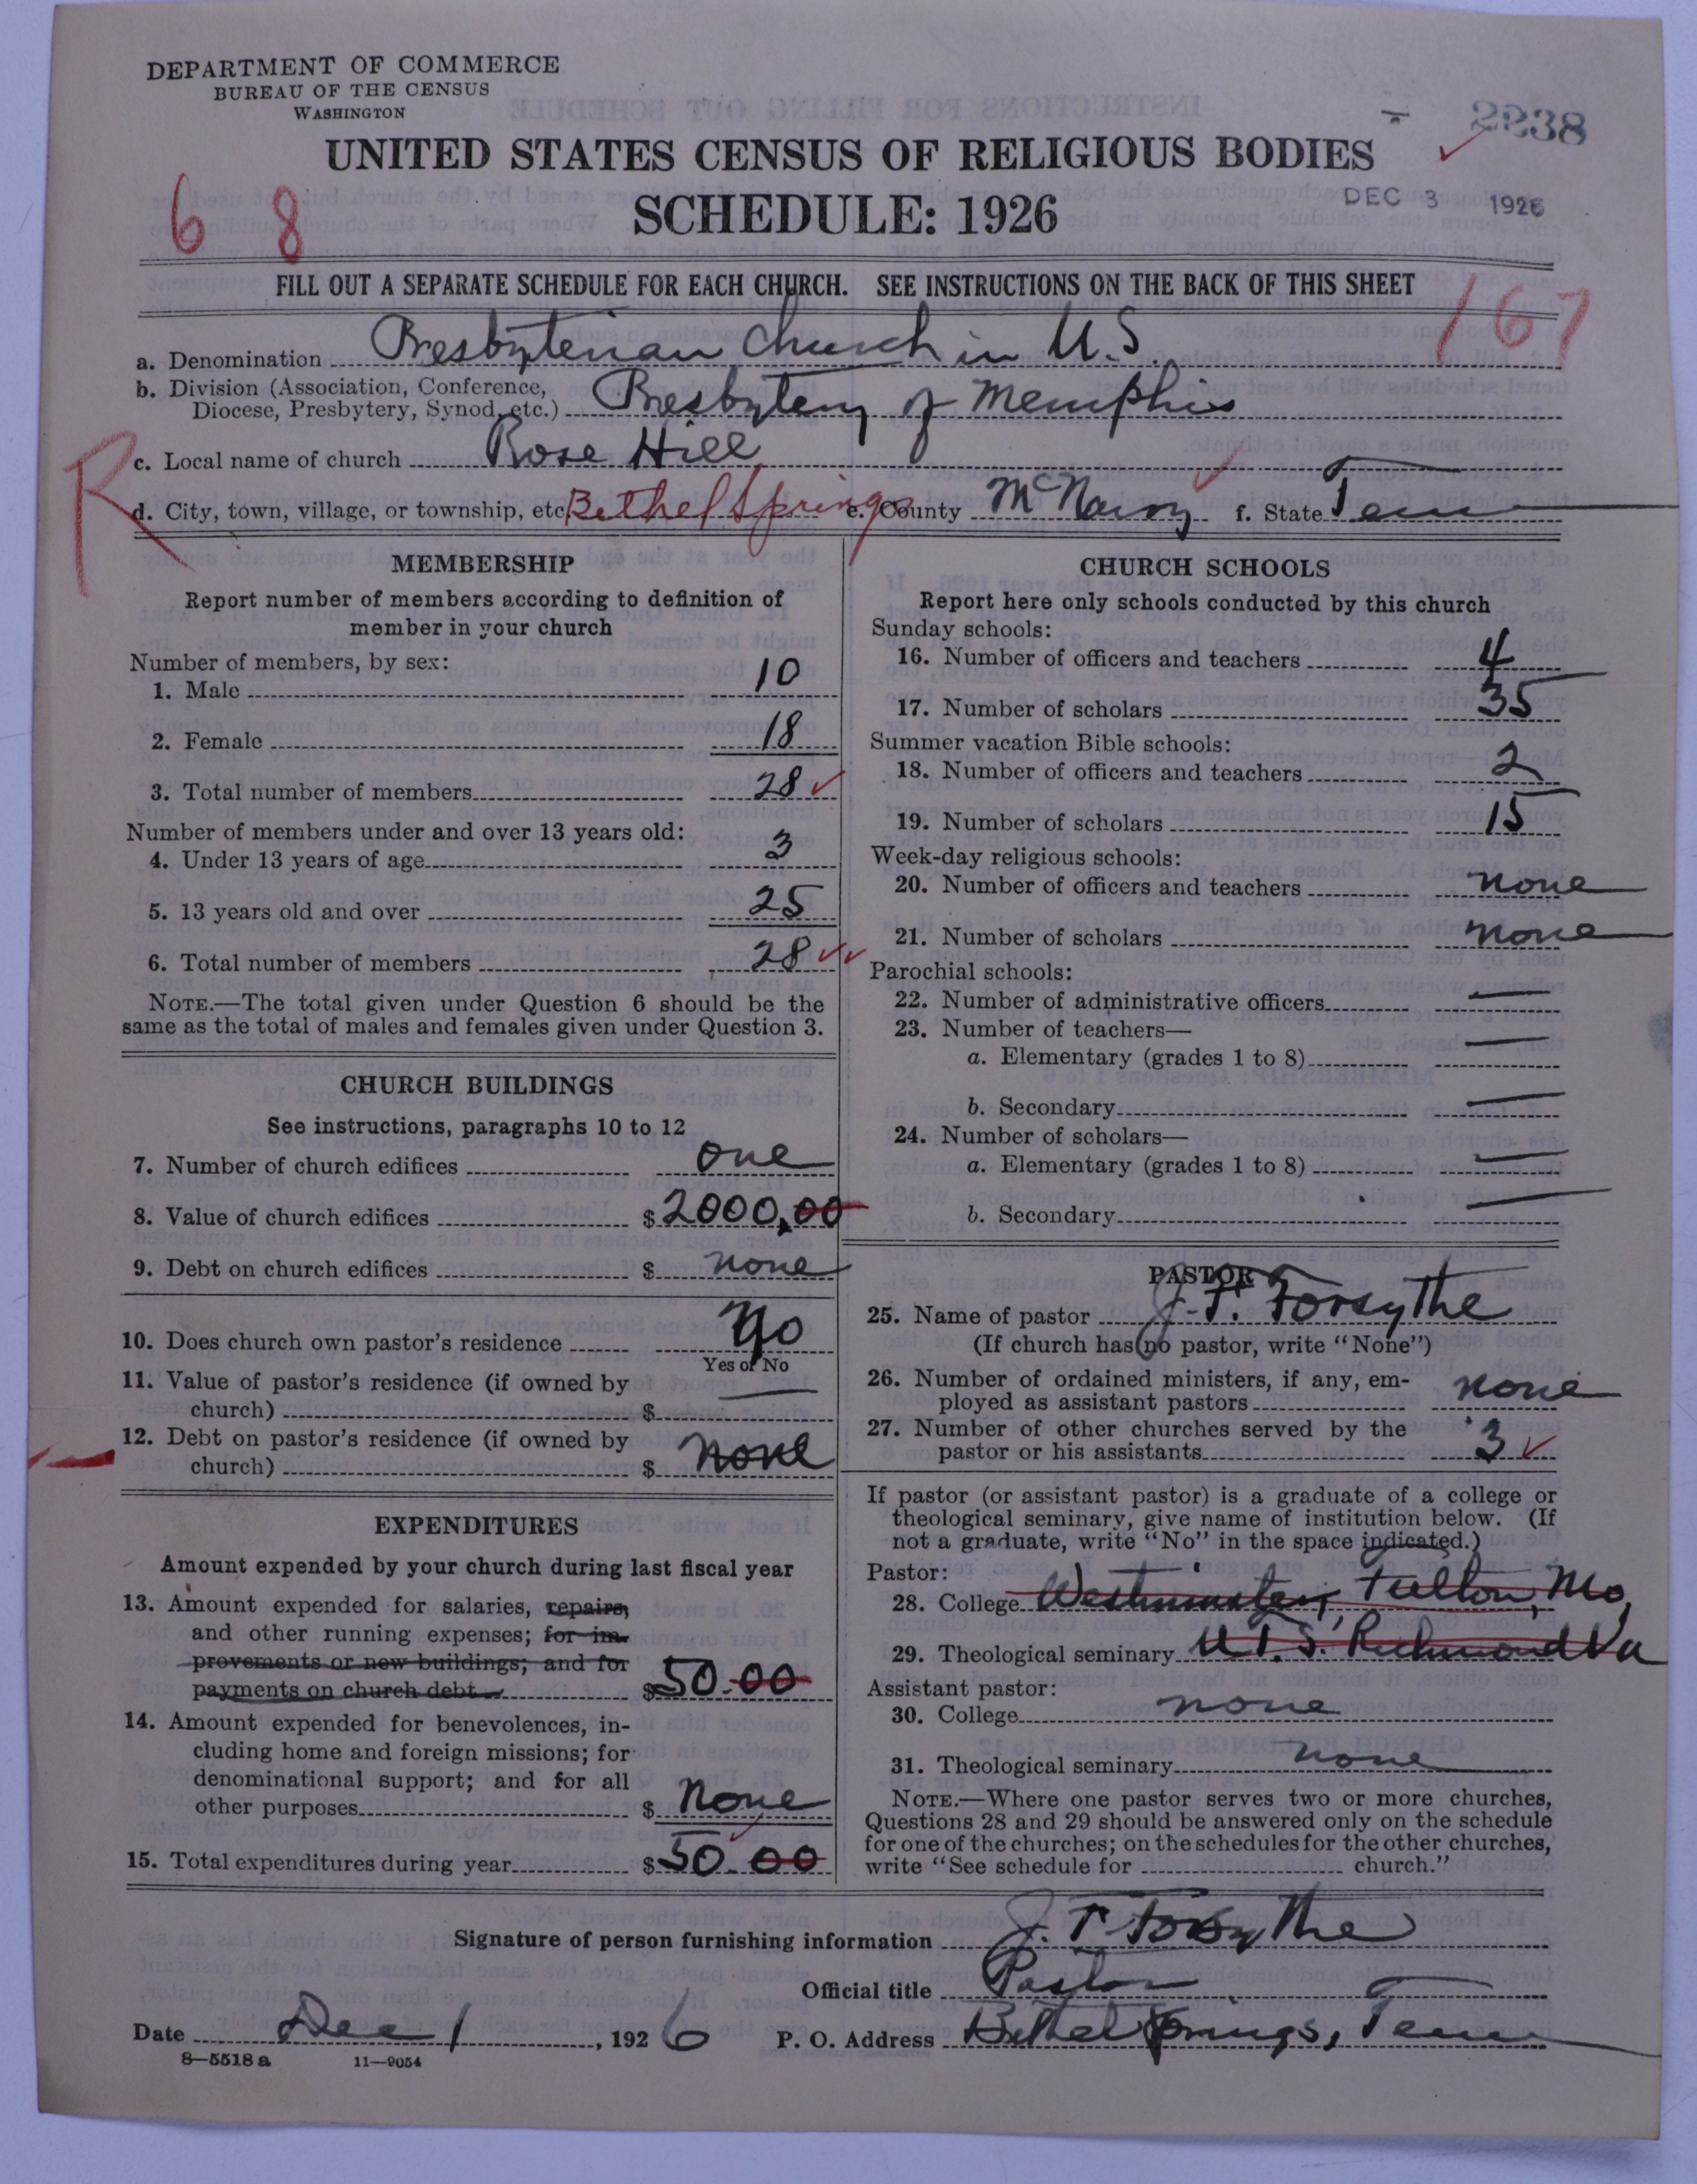 DEPARTMENT OF COMMERCE
BUREAU OF THE CENSUS
WASHINGTON
2238
UNITED STATES CENSUS OF RELIGIOUS BODIES
DEC 3 1926
6 8
SCHEDULE: 1926
FILL OUT A SEPARATE SCHEDULE FOR EACH CHURCH. SEE INSTRUCTIONS ON THE BACK OF THIS SHEET
167
a. Denomination Presbyterian Church in U.S.
b. Division (Association, Conference,
Diocese, Presbytery, Synod, etc.) Presbytery of Memphis
c. Local name of church Rose Hill
R
d. City, town, village, or township, etc. Bethel Springs e. County McNairy f. State Tenn
MEMBERSHIP
Report number of members according to definition of
member in your church
Number of members, by sex:
1. Male 10
2. Female 18
3. Total number of members 28
Number of members under and over 13 years old:
4. Under 13 years of age 3
5. 13 years old and over 25
6. Total number of members 28
NOTE.—The total given under Question 6 should be the
same as the total of males and females given under Question 3.
CHURCH BUILDINGS
See instructions, paragraphs 10 to 12
7. Number of church edifices one
8. Value of church edifices $ 2000,00
9. Debt on church edifices $ none
10. Does church own pastor's residence No
Yes or No
11. Value of pastor's residence (if owned by
church) $
12. Debt on pastor's residence (if owned by
church) $ none
EXPENDITURES
Amount expended by your church during last fiscal year
13. Amount expended for salaries, repairs,
and other running expenses; for im-
provements or new buildings; and for
payments on church debt $ 50.00
14. Amount expended for benevolences, in-
cluding home and foreign missions; for
denominational support; and for all
other purposes $ None
15. Total expenditures during year $ 50.00
CHURCH SCHOOLS
Report here only schools conducted by this church
Sunday schools:
16. Number of officers and teachers 4
17. Number of scholars 35
Summer vacation Bible schools:
18. Number of officers and teachers 2
19. Number of scholars 15
Week-day religious schools:
20. Number of officers and teachers none
21. Number of scholars none
Parochial schools:
22. Number of administrative officers
23. Number of teachers—
a. Elementary (grades 1 to 8)
b. Secondary
24. Number of scholars—
a. Elementary (grades 1 to 8)
b. Secondary
PASTOR
25. Name of pastor J. T. Forsythe
(If church has no pastor, write "None")
26. Number of ordained ministers, if any, em-
ployed as assistant pastors none
27. Number of other churches served by the
pastor or his assistants 3
If pastor (or assistant pastor) is a graduate of a college or
theological seminary, give name of institution below. (If
not a graduate, write "No" in the space indicated.)
Pastor:
28. College Westminster, Fulton, Mo,
29. Theological seminary U.T.S. Richmond Va
Assistant pastor:
30. College none
31. Theological seminary none
NOTE.—Where one pastor serves two or more churches,
Questions 28 and 29 should be answered only on the schedule
for one of the churches; on the schedules for the other churches,
write "See schedule for church."
Signature of person furnishing information J. T. Forsythe
Official title Pastor
Date Dec 1, 1926 P. O. Address Bethel Springs, Tenn
8—5518 a 11—9054